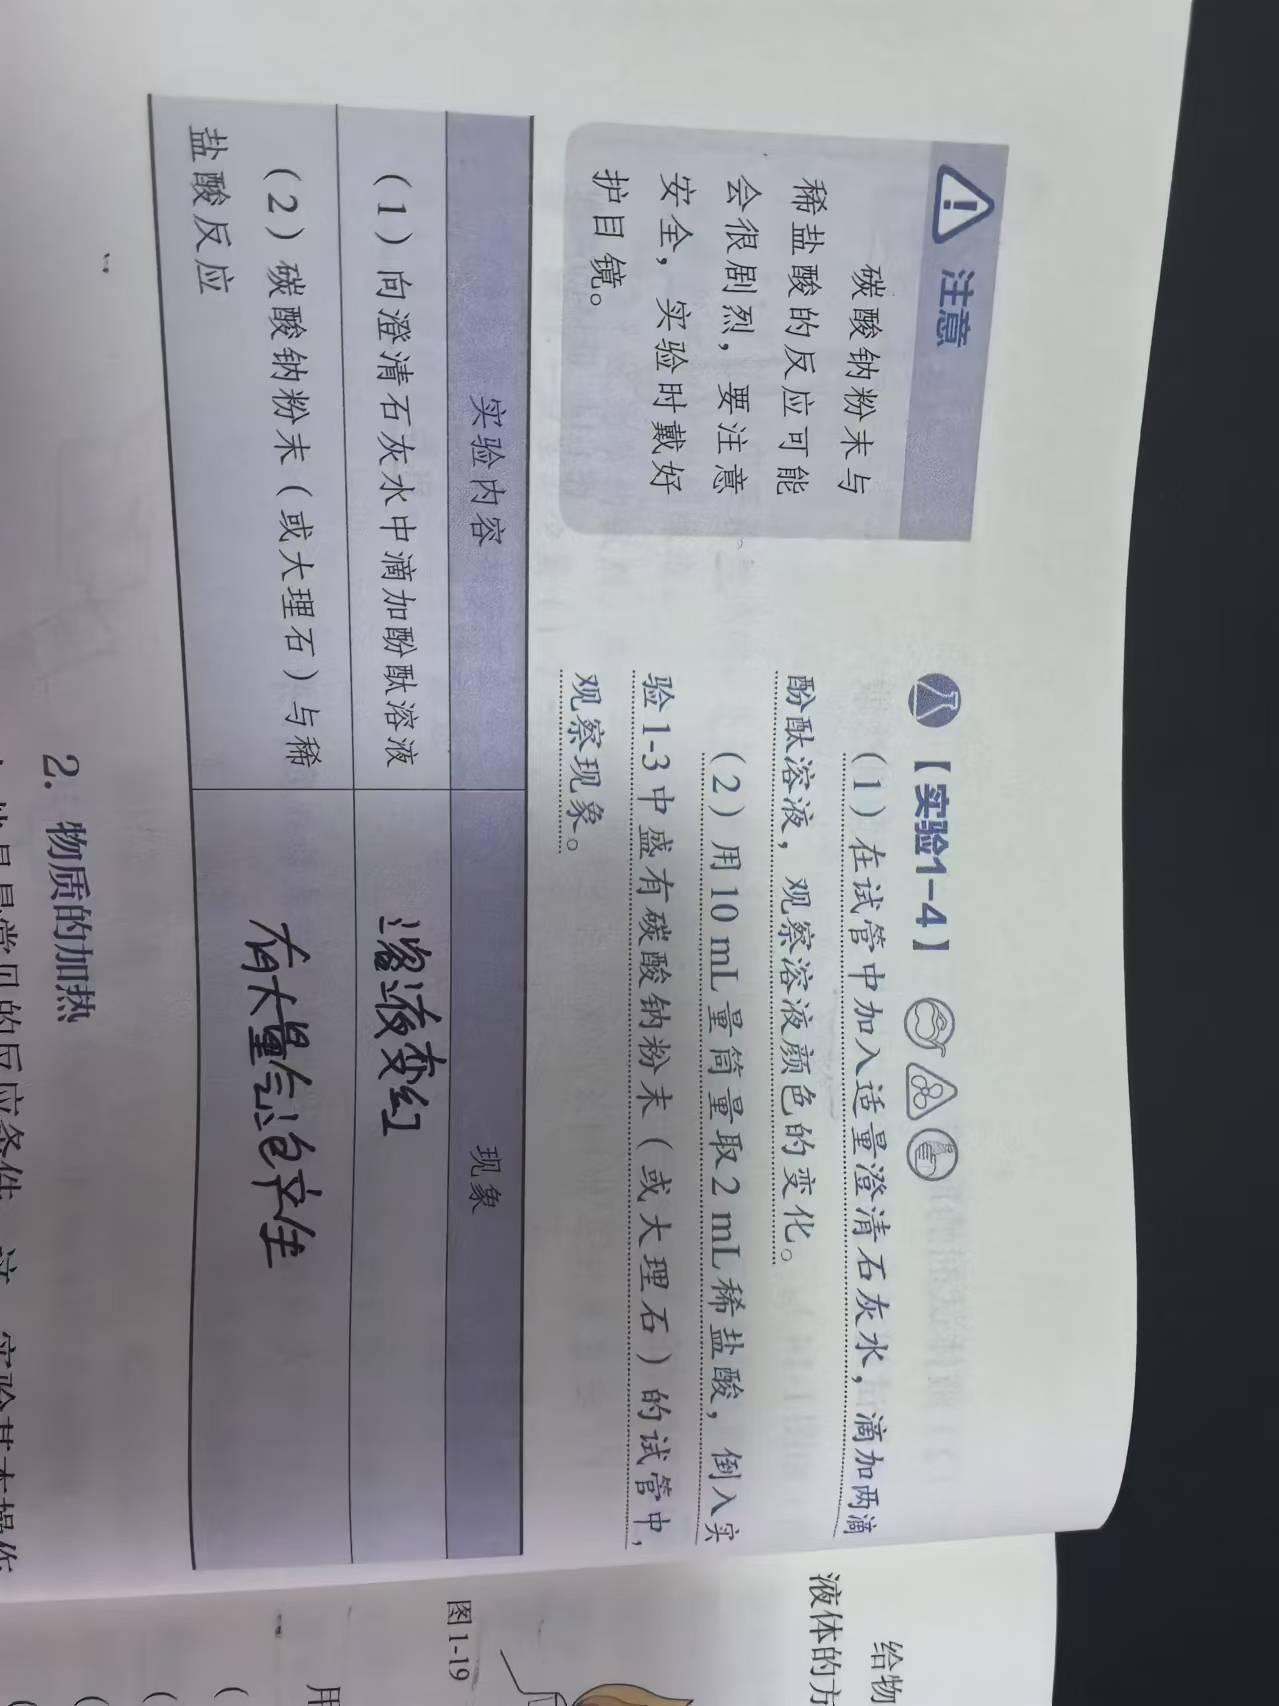 注意
碳酸钠粉末与
稀盐酸的反应可能
会很剧烈，要注意
安全，实验时戴好
护目镜。
【实验1-4】
（1）在试管中加入适量澄清石灰水，滴加两滴
酚酞溶液，观察溶液颜色的变化。
（2）用10 mL量筒量取2 mL稀盐酸，倒入实
验1-3中盛有碳酸钠粉末（或大理石）的试管中，
观察现象。
实验内容
现象
（1）向澄清石灰水中滴加酚酞溶液
溶液变红
（2）碳酸钠粉末（或大理石）与稀
盐酸反应
有大量气泡产生
2. 物质的加热
给物
液体的方
图1-19
用